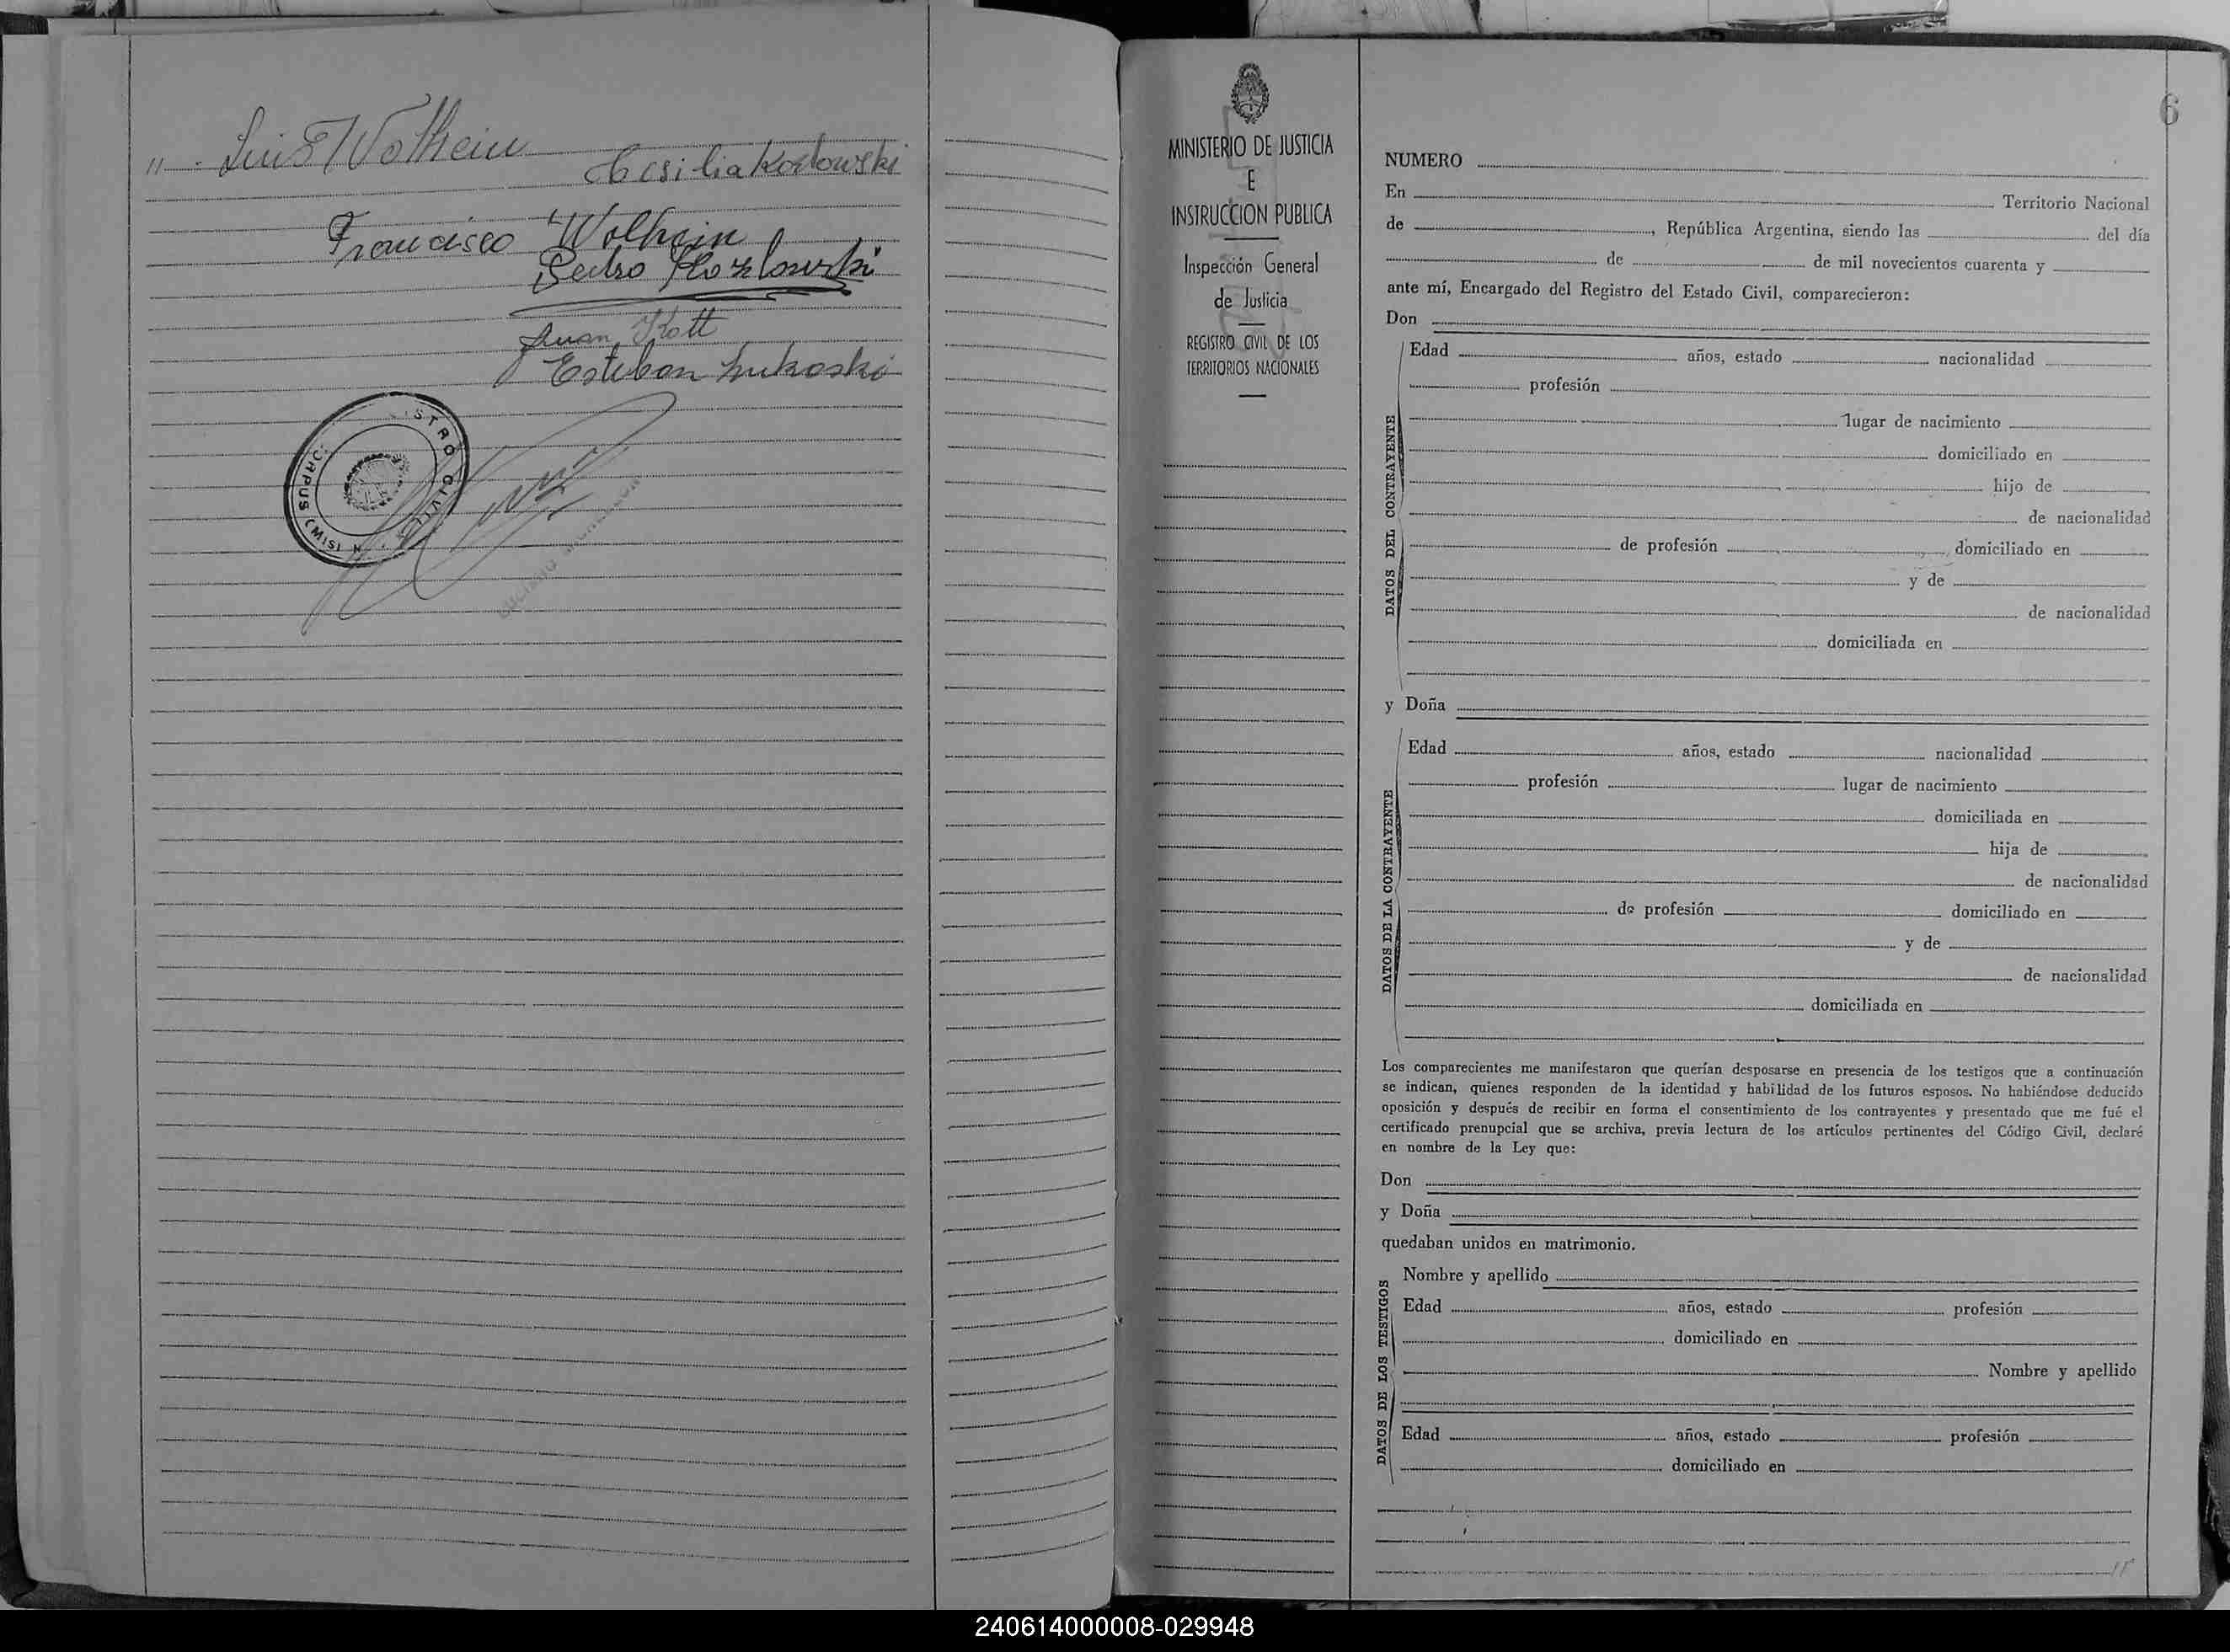 " . Luis E Wolhein
Cecilia Kozlowski
Francisco Wolhein
Pedro Kozlowski
Juan Kott
Esteban Lukoski
STRO CIVIL
CORPUS (MISI
6
MINISTERIO DE JUSTICIA
E
INSTRUCCION PUBLICA
Inspección General
de Justicia
REGISTRO CIVIL DE LOS
TERRITORIOS NACIONALES
NUMERO
En Territorio Nacional
de , República Argentina, siendo las del día
de de mil novecientos cuarenta y
ante mí, Encargado del Registro del Estado Civil, comparecieron:
Don
DATOS DEL CONTRAYENTE
Edad años, estado nacionalidad
profesión
lugar de nacimiento
domiciliado en
hijo de
de nacionalidad
de profesión , domiciliado en
y de
de nacionalidad
domiciliada en
y Doña
DATOS DE LA CONTRAYENTE
Edad años, estado nacionalidad
profesión lugar de nacimiento
domiciliada en
hija de
de nacionalidad
de profesión domiciliado en
y de
de nacionalidad
domiciliada en
Los comparecientes me manifestaron que querían desposarse en presencia de los testigos que a continuación
se indican, quienes responden de la identidad y habilidad de los futuros esposos. No habiéndose deducido
oposición y después de recibir en forma el consentimiento de los contrayentes y presentado que me fué el
certificado prenupcial que se archiva, previa lectura de los artículos pertinentes del Código Civil, declaré
en nombre de la Ley que:
Don
y Doña
quedaban unidos en matrimonio.
DATOS DE LOS TESTIGOS
Nombre y apellido
Edad años, estado profesión
domiciliado en
Nombre y apellido
Edad años, estado profesión
domiciliado en
240614000008-029948